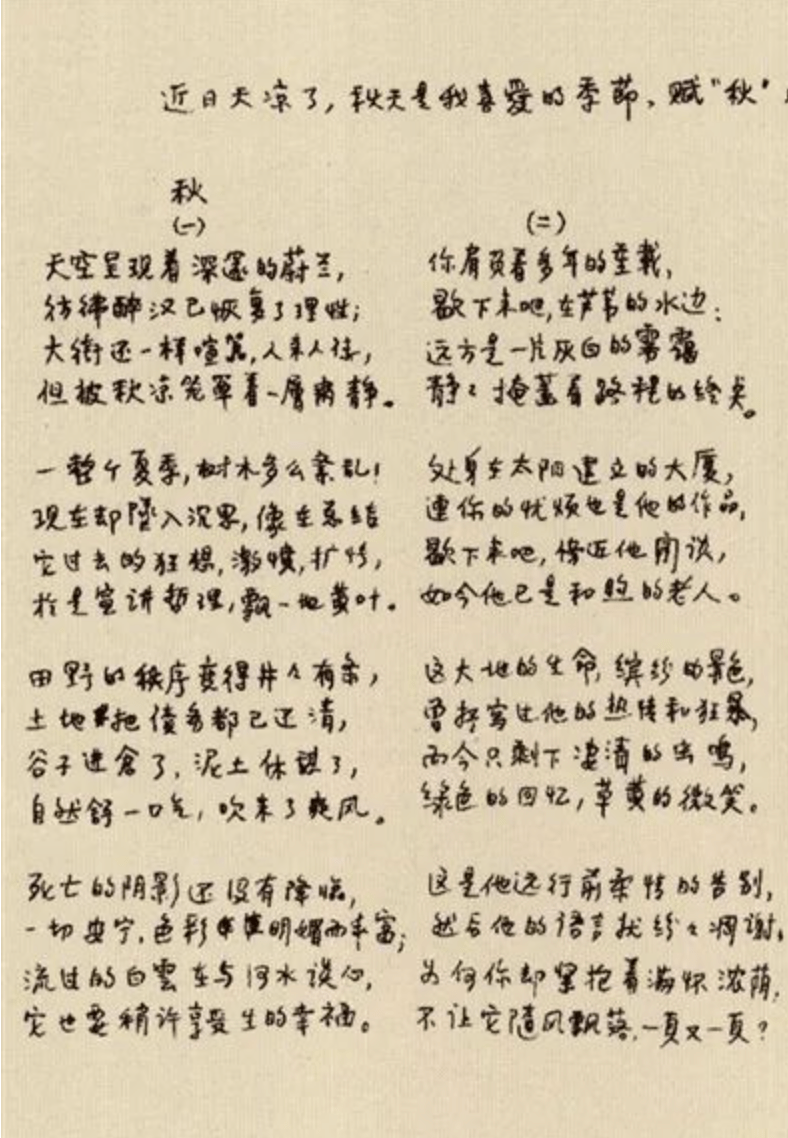 近日天凉了,秋天是我喜爱的季節、赋"秋"
秋
(一)
天空呈现着深邃的蔚兰,
彷彿醉汉已恢复了理性;
大街还一样喧笼,人来人往,
但被秋凉笼罩着一層肃静。
一整个夏季,树木多么紊乱!
现在却墜入沉思,像在总结
它过去的狂想,激愤,扩张,
於是宣讲哲理,飘一地黄叶。
田野的秩序变得井々有条,
土地把債务都已还清,
谷子进倉了,泥土休憩了,
自然舒一口气,吹来了爽风。
死亡的阴影还没有降临,
一切安宁,色彩明媚而丰富;
流过的白雲在与河水谈心,
它也要稍许享受生的幸福。
(二)
你肩负着多年的重载,
歇下来吧,在芦苇的水边:
远方是一片灰白的雾靄
静々掩盖着路程的终点。
处身在太阳建立的大厦,
連你的忧烦也是他的作品,
歇下来吧,傍近他闲谈,
如今他已是和煦的老人。
这大地的生命,缤纷的景色,
曾抒写过他的热情和狂暴,
而今只剩下凄清的虫鸣,
绿色的回忆,草黄的微笑。
这是他远行前柔情的告别,
然后他的语言就纷々凋谢,
为何你却紧抱着满怀浓荫,
不让它随风飘落,一頁又一頁?